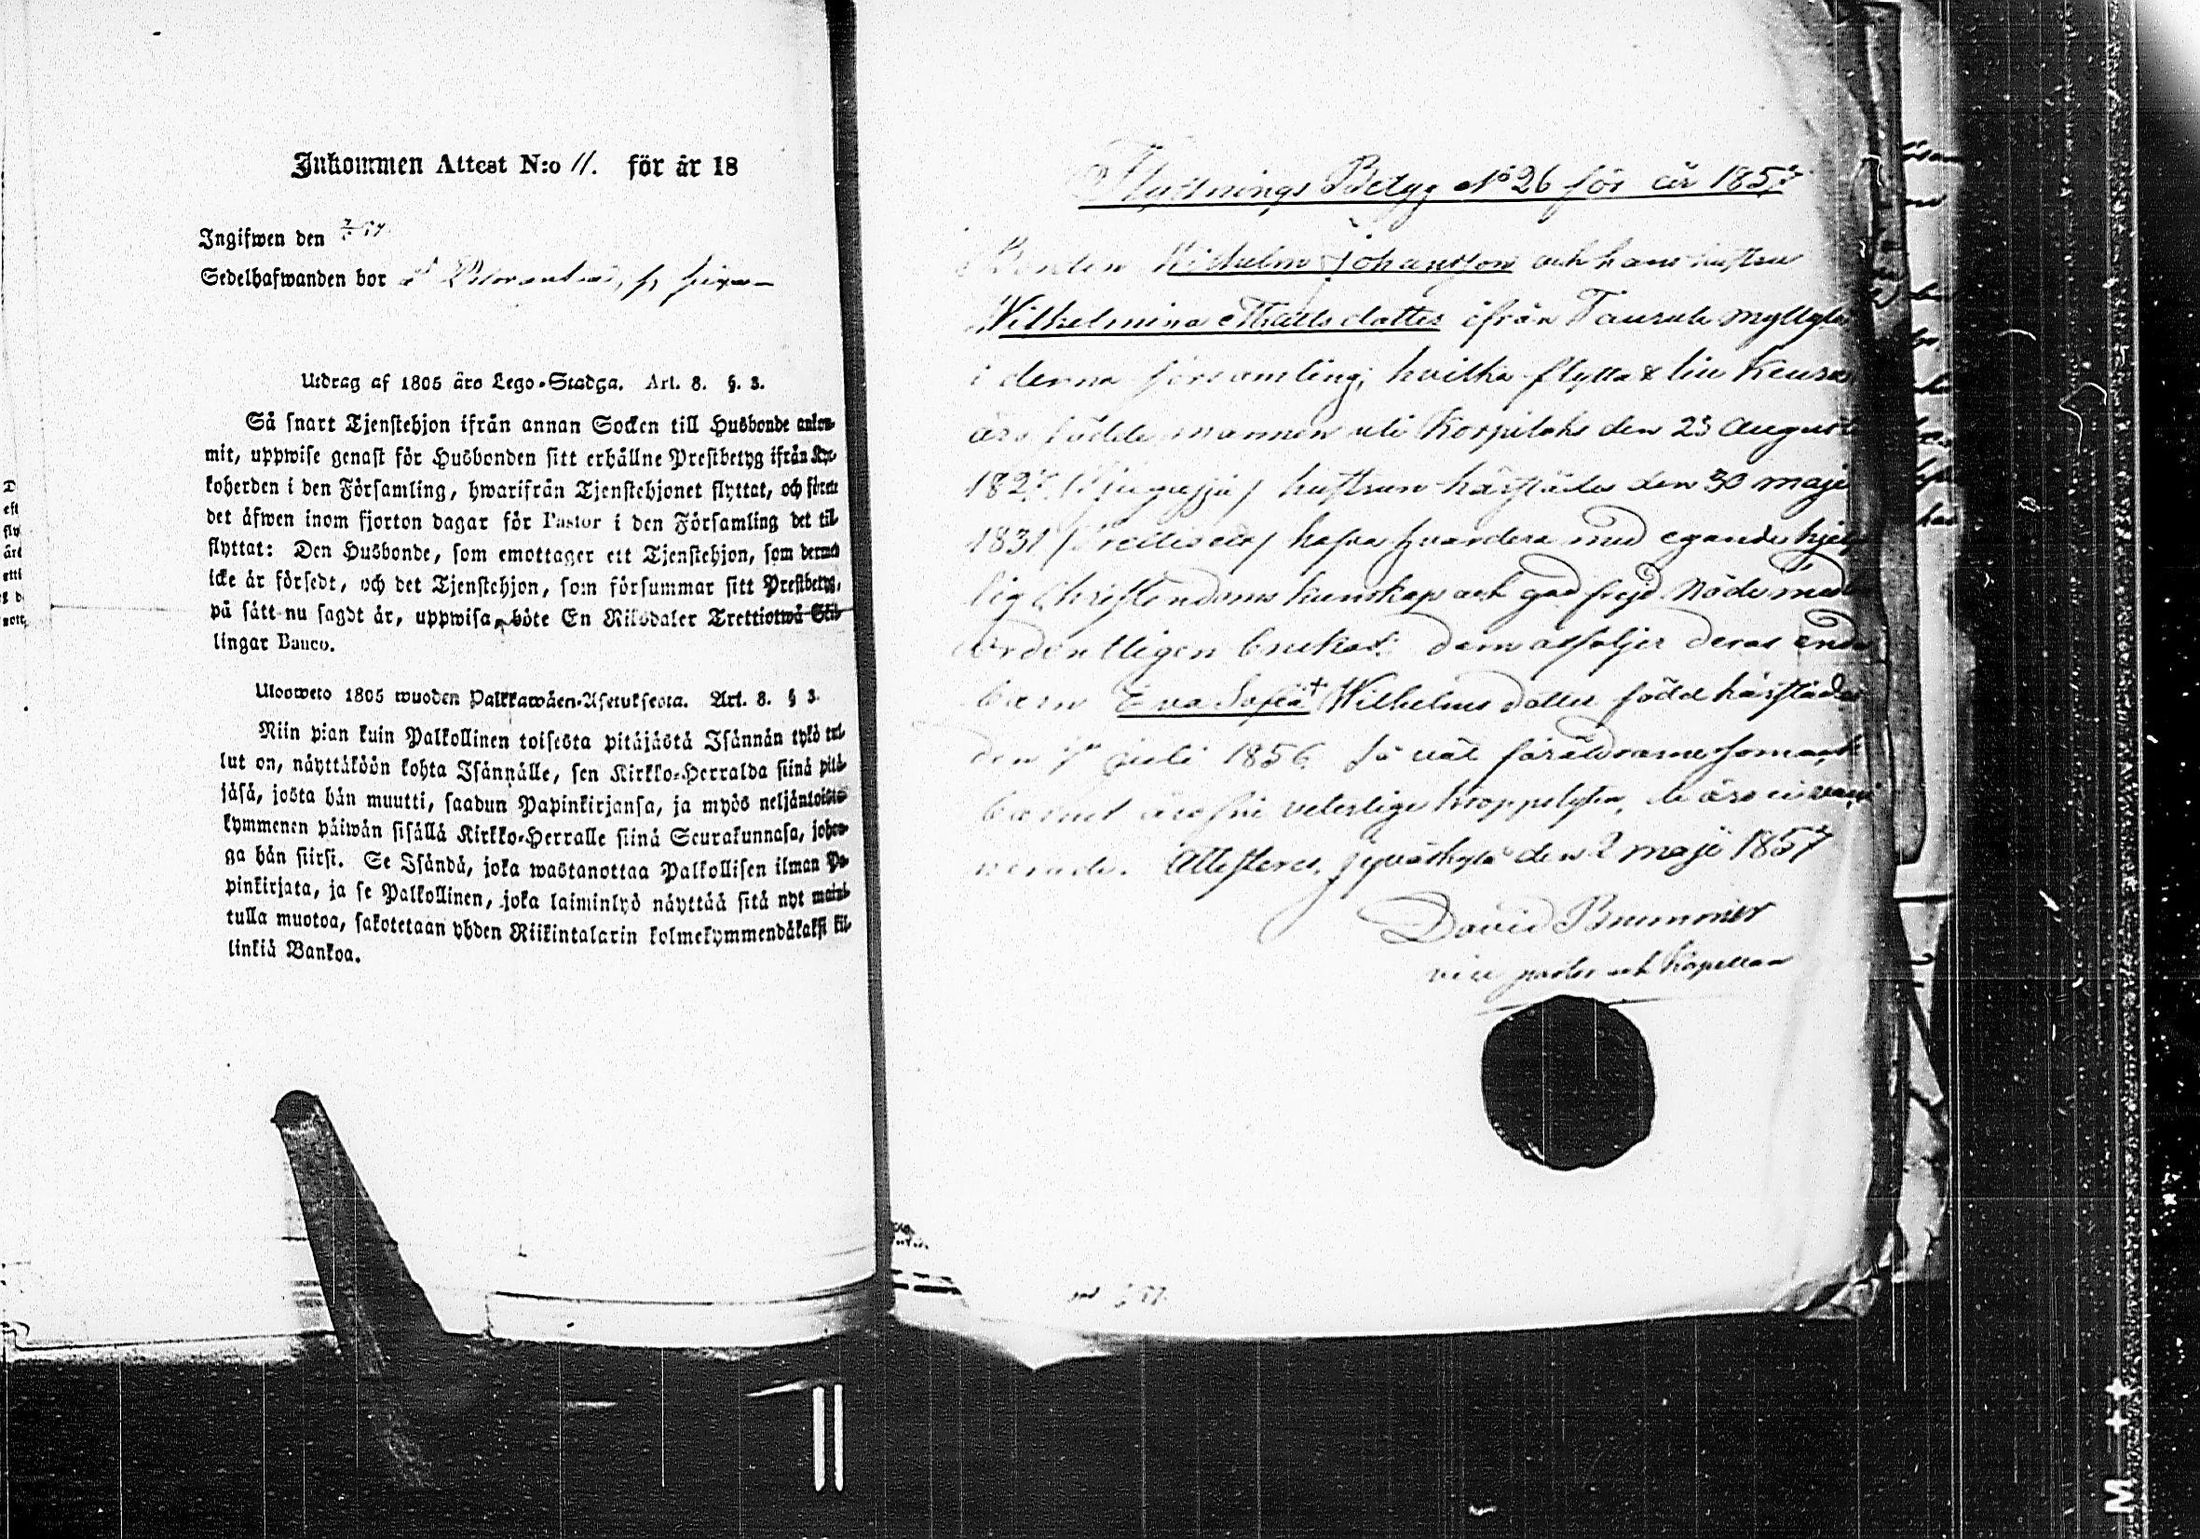 Inkommen Attest N:o 11. för år 18
Ingifwen den
Sedelhafwanden bor
Utdrag af 1805 års Lego-Stadga. Art. 8. §. 3.
Så snart Tjenstehjon ifrån annan Socken till Husbonde ankom-
mit, uppwise genast för Husbonden sitt erhållne Prestbetyg ifrån Kyr-
koherden i den Församling, hwarifrån Tjenstehjonet flyttat, och förete
det äfwen inom fjorton dagar för Pastor i den Församling det till-
flyttat: Den Husbonde, som emottager ett Tjenstehjon, som dermed
icke är försedt, och det Tjenstehjon, som försummar sitt Prestbetyg,
på sätt nu sagdt är, uppwisa, böte En Riksdaler Trettiotwå Skil-
lingar Banco.
Ulosweto 1805 wuoden Palkkawäen-Asetuksesta. Art. 8. § 3.
Niin pian kuin Palkollinen toisesta pitäjästä Isännän tykö tul-
lut on, näyttäköön kohta Isännälle, sen Kirkko-Herralda siinä pitä-
jäsä, josta hän muutti, saadun Papinkirjansa, ja myös neljäntoista-
kymmenen päiwän sisällä Kirkko-Herralle siinä Seurakunnasa, johon-
ga hän siirsi. Se Isändä, joka wastanottaa Palkollisen ilman Pa-
pinkirjata, ja se Palkollinen, joka laiminlyö näyttää sitä nyt maini-
tulla muotoa, sakotetaan yhden Riikintalarin kolmekymmendäkaksi kil-
linkiä Bankoa.
Flyttnings Betyg No 26 för år 1857
Bonden Wilhelm Johansson och hans hustru
Wilhelmina Mattsdotter ifrån Taurula Myllylä
i denna församling, hvilka flytta till Keuru
äro födde mannen uti Korpilaks den 23 Augusti
182 hustrun härstädes den 30 maji
1831 hafva hvardera med egande
lig Christendoms kunskap och god frejd Nådemedlen
ordentligen brukat: dem åtföljer deras enda
barn Eva Sofia + Wilhelmsdotter född härstädes
den juli 1856. Så väl föräldrarne som ock
barnet äro fri veterlige kroppslyten, de äro
Attesteras, Jyväskylä den 2 maji 1857
David Brummer
vice pastor och Kapellan